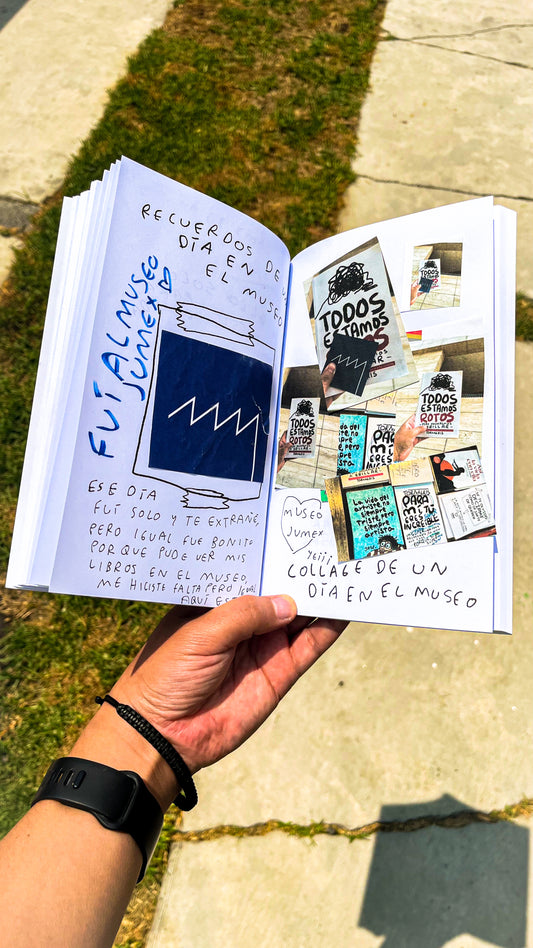 RECUERDOS DE U
DÍA EN
EL MUSEO
FUÍ AL MUSEO
JUMEX
ESE DÍA
FUÍ SOLO Y TE EXTRAÑE,
PERO IGUAL FUE BONITO
PORQUE PUDE VER MIS
LIBROS EN EL MUSEO,
ME HICISTE FALTA PERO
AQUÍ
TODOS
ESTAMOS
ROTOS
TODOS
ESTAMOS
ROTOS
TODOS
ESTAMOS
ROTOS
La vida del
artista no
siempre es
triste, pero
siempre
artista.
PARA
MÍ
ERES
INCREÍBLE
MUSEO
JUMEX
YEIII
COLLAGE DE UN
DÍA EN EL MUSEO